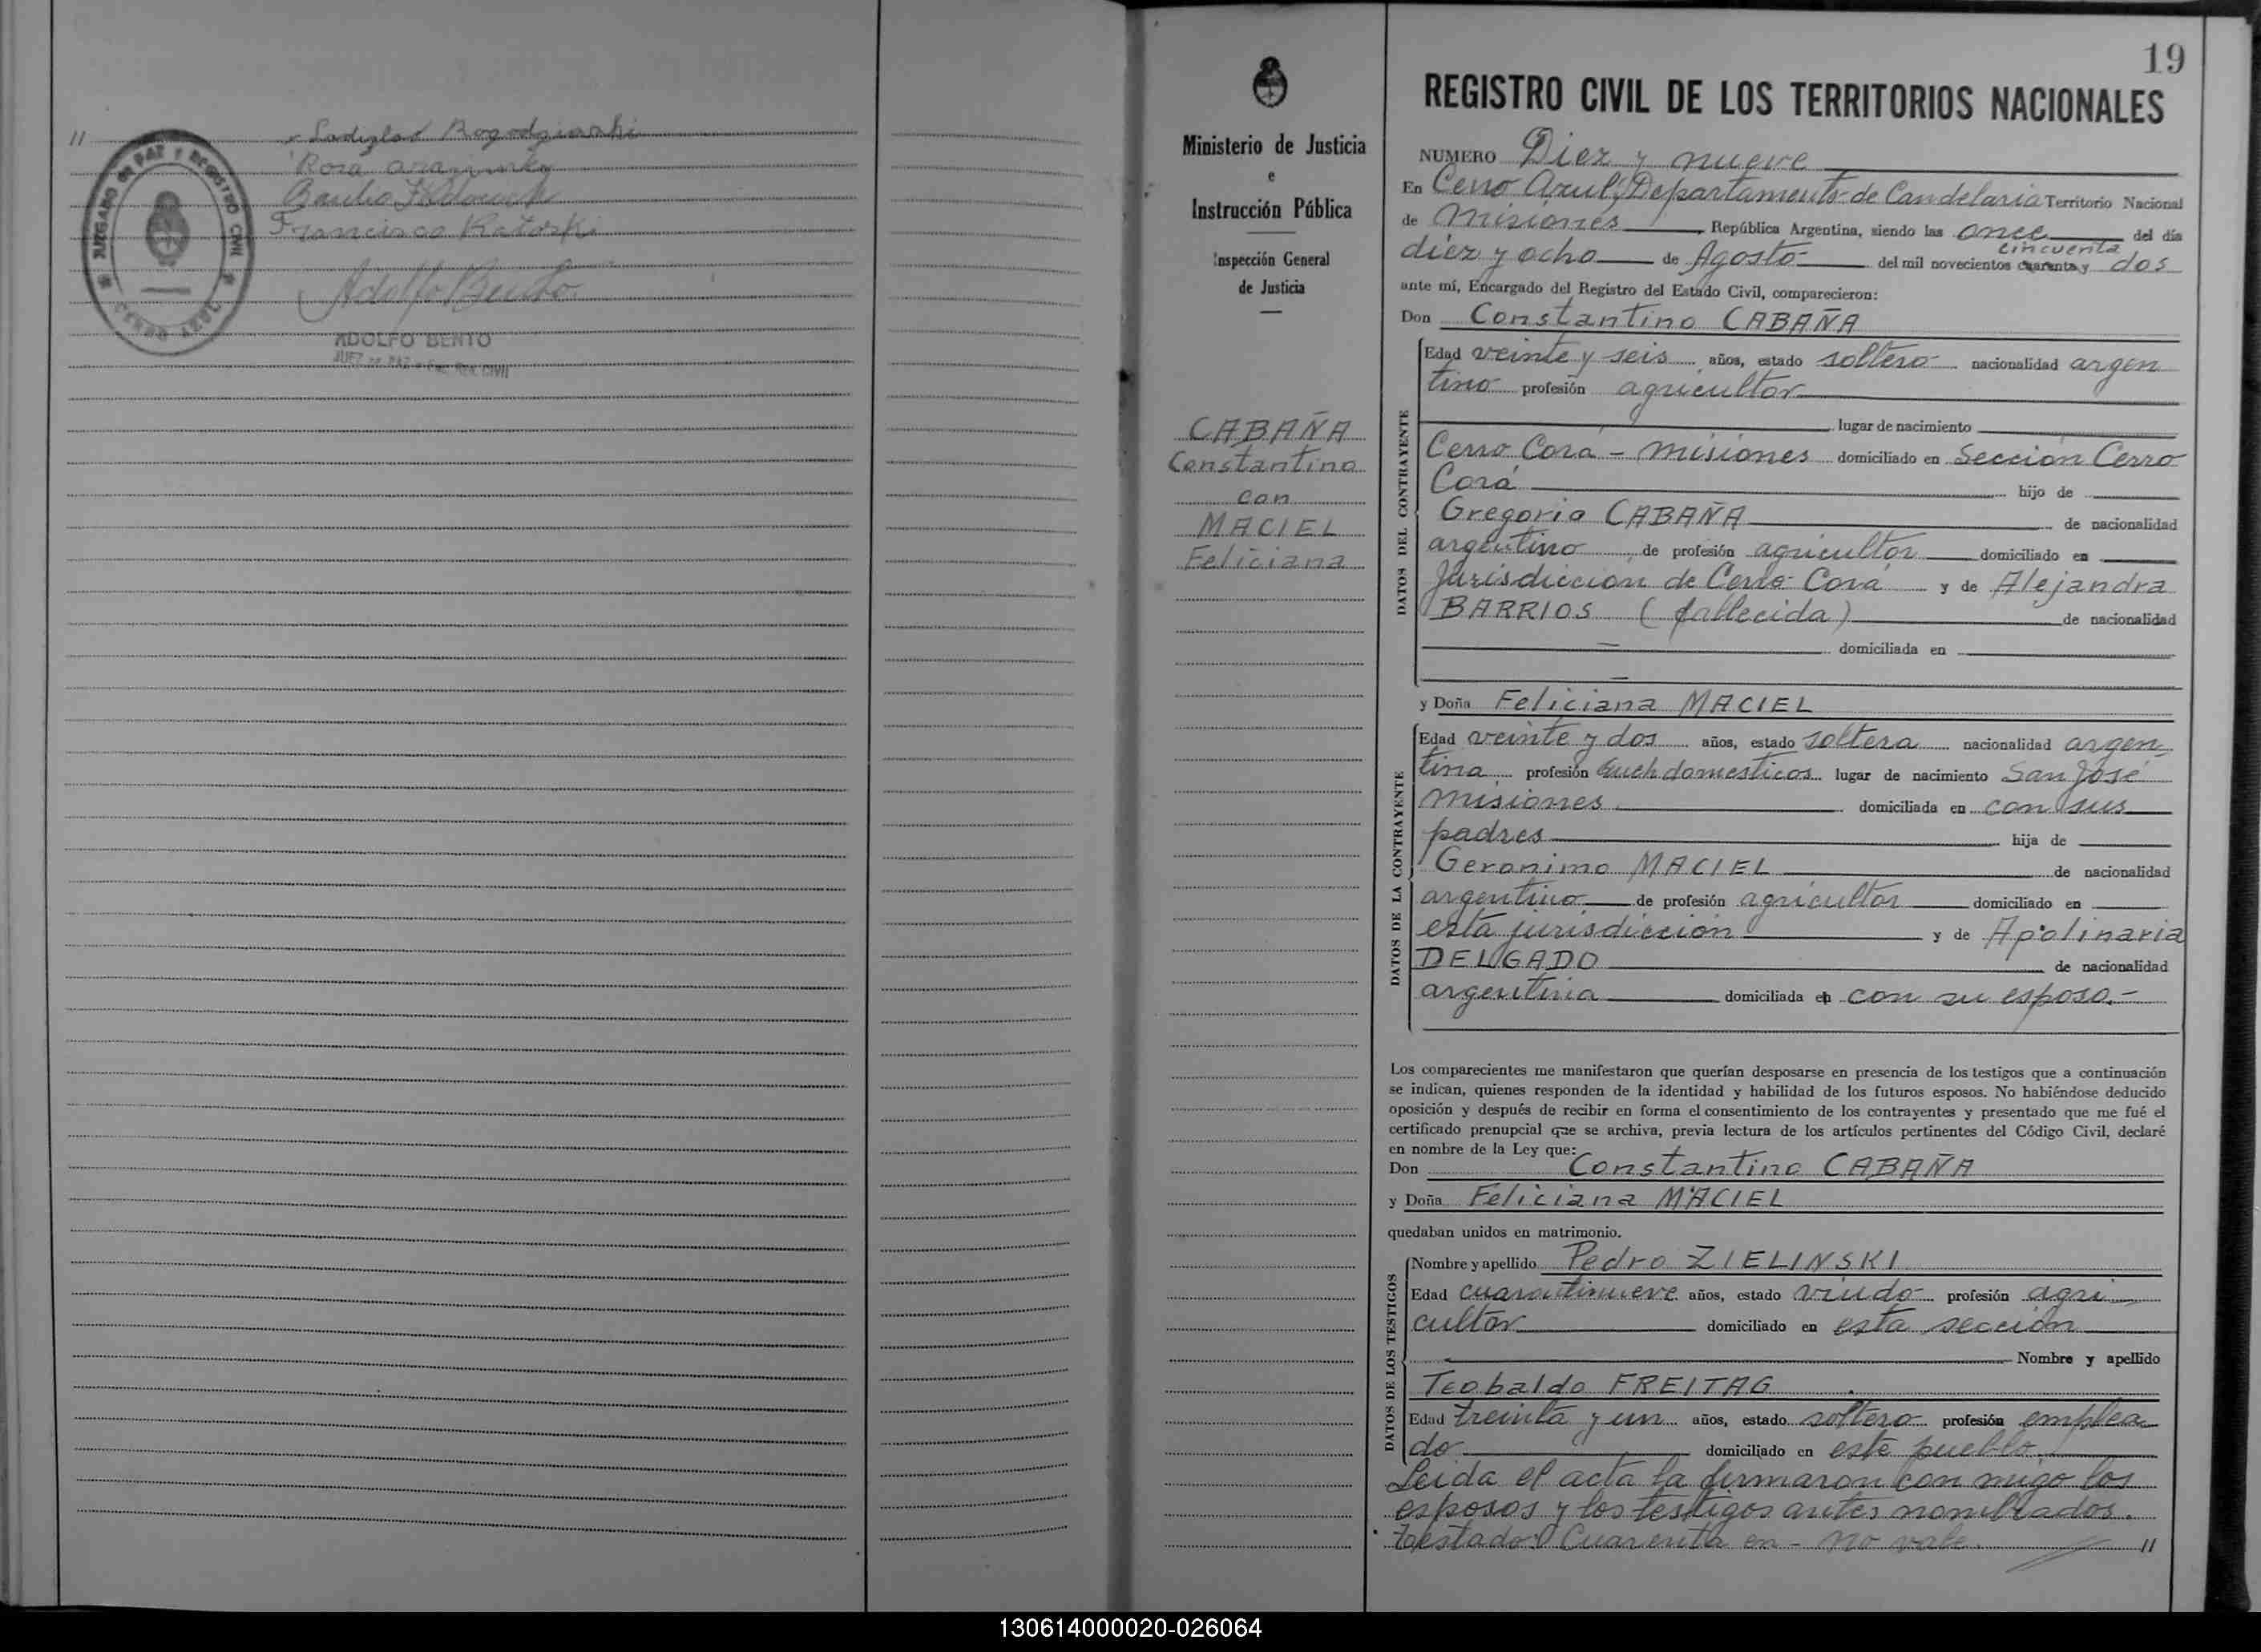 //
Ladizlao Rogodzinski
Rosa
Basilio
Francisco Ratoski
Adolfo Bento
ADOLFO BENTO
JUEZ DE PAZ - Enc. REG. CIVIL
JUZGADO DE PAZ Y REGISTRO CIVIL
CERRO AZUL
Ministerio de Justicia
e
Instrucción Pública
Inspección General
de Justicia
CABAÑA
Constantino
con
MACIEL
Feliciana
19
REGISTRO CIVIL DE LOS TERRITORIOS NACIONALES
NUMERO Diez y nueve
En Cerro Azul, Departamento de Candelaria Territorio Nacional
de Misiones, República Argentina, siendo las once del día
cincuenta
diez y ocho de Agosto del mil novecientos cuarenta y dos
ante mí, Encargado del Registro del Estado Civil, comparecieron:
Don Constantino CABAÑA
DATOS DEL CONTRAYENTE
Edad veinte y seis años, estado soltero nacionalidad argen
tino profesión agricultor
lugar de nacimiento
Cerro Corá - Misiones domiciliado en Sección Cerro
Corá hijo de
Gregorio CABAÑA de nacionalidad
argentino de profesión agricultor domiciliado en
Jurisdicción de Cerro Corá y de Alejandra
BARRIOS (fallecida) de nacionalidad
domiciliada en
y Doña Feliciana MACIEL
DATOS DE LA CONTRAYENTE
Edad veinte y dos años, estado soltera nacionalidad argen-
tina profesión domesticos lugar de nacimiento San José
Misiones domiciliada en con sus
padres hija de
Geronimo MACIEL de nacionalidad
argentino de profesión agricultor domiciliado en
esta jurisdicción y de Apolinaria
DELGADO de nacionalidad
argentina domiciliada en con su esposo.-
Los comparecientes me manifestaron que querían desposarse en presencia de los testigos que a continuación
se indican, quienes responden de la identidad y habilidad de los futuros esposos. No habiéndose deducido
oposición y después de recibir en forma el consentimiento de los contrayentes y presentado que me fué el
certificado prenupcial que se archiva, previa lectura de los artículos pertinentes del Código Civil, declaré
en nombre de la Ley que:
Don Constantino CABAÑA
y Doña Feliciana MACIEL
quedaban unidos en matrimonio.
DATOS DE LOS TESTIGOS
Nombre y apellido Pedro ZIELINSKI
Edad cuarentinueve años, estado viudo profesión agri
cultor domiciliado en esta sección
Nombre y apellido
Teobaldo FREITAG
Edad treinta y un años, estado soltero profesión emplea
do domiciliado en este pueblo.
Leida el acta la firmaron con migo los
esposos y los testigos antes nombrados.
Testado: Cuarenta en - no vale. //
130614000020-026064